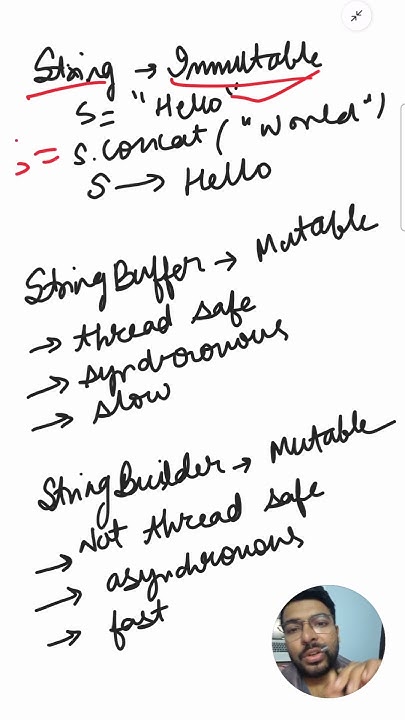 String → Immutable
S= "Hello"
s= s.concat("World")
S → Hello
StringBuffer → Mutable
→ thread safe
→ syndroronous
→ slow
StringBuilder → Mutable
→ Not thread safe
→ asyndhronous
→ fast